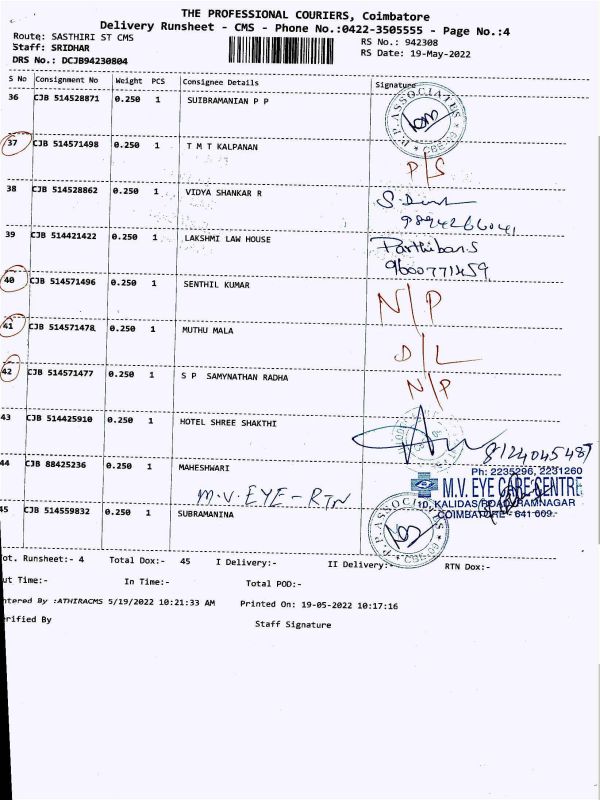 THE PROFESSIONAL COURIERS, Coimbatore
Delivery Runsheet - CMS - Phone No.:0422-3505555 - Page No.:4
Route: SASTHIRI ST CMS RS No.: 942308
Staff: SRIDHAR RS Date: 19-May-2022
DRS No.: DCJB94230804
S No Consignment No Weight PCS Consignee Details Signature
36 CJB 514528871 0.250 1 SUIBRAMANIAN P P
P.P.ASSOCIATES * CBE-09 *
37 CJB 514571498 0.250 1 T M T KALPANAN P/S
38 CJB 514528862 0.250 1 VIDYA SHANKAR R
9894266041
39 CJB 514421422 0.250 1 LAKSHMI LAW HOUSE Parthiban.S
9600771459
40 CJB 514571496 0.250 1 SENTHIL KUMAR N/P
41 CJB 514571478 0.250 1 MUTHU MALA D/L
42 CJB 514571477 0.250 1 S P SAMYNATHAN RADHA N/P
43 CJB 514425910 0.250 1 HOTEL SHREE SHAKTHI
8124045487
44 CJB 88425236 0.250 1 MAHESHWARI
M.V. EYE - RTN
Ph: 2235296, 2231260
M.V. EYE CARE CENTRE
10, KALIDAS ROAD, RAMNAGAR
COIMBATORE - 641 009.
45 CJB 514559832 0.250 1 SUBRAMANINA
P.P.ASSOCIATES * CBE-09 *
Tot. Runsheet:- 4 Total Dox:- 45 I Delivery:- II Delivery:- RTN Dox:-
Out Time:- In Time:- Total POD:-
Entered By :ATHIRACMS 5/19/2022 10:21:33 AM Printed On: 19-05-2022 10:17:16
Verified By Staff Signature